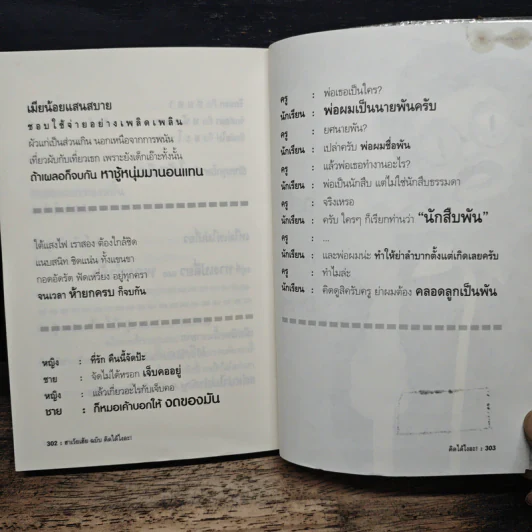 เมียน้อยแสนสบาย
ชอบใช้จ่ายอย่างเพลิดเพลิน
ผัวแก่เป็นส่วนเกิน นอกเหนือจากการพนัน
เที่ยวผับกับเที่ยวเธค เพราะยังเด็กเอ๊าะทั้งนั้น
ถ้าเผลอก็จบกัน หาชู้หนุ่มมานอนแทน
ใต้แสงไฟ เราสอง ต้องใกล้ชิด
แนบสนิท ชิดแน่น ทั้งแขนขา
กอดอัดรัด ฟัดเหวี่ยง อยู่ทุกครา
จนเวลา ห้ายกครบ ก็จบกัน
หญิง : ที่รัก คืนนี้จัดป้ะ
ชาย : จัดไม่ได้หรอก เจ็บคออยู่
หญิง : แล้วเกี่ยวอะไรกับเจ็บคอ
ชาย : ก็หมอเค้าบอกให้ งดของมัน
302 : ฮาเว้ยเฮ้ย ฉบับ คิดได้ไงอะ!
ครู : พ่อเธอเป็นใคร?
นักเรียน : พ่อผมเป็นนายพันครับ
ครู : ยศนายพัน?
นักเรียน : เปล่าครับ พ่อผมชื่อพัน
ครู : แล้วพ่อเธอทำงานอะไร?
นักเรียน : พ่อเป็นนักสืบ แต่ไม่ใช่นักสืบธรรมดา
ครู : จริงเหรอ
นักเรียน : ครับ ใครๆ ก็เรียกท่านว่า "นักสืบพัน"
ครู : ...
นักเรียน : และพ่อผมน่ะ ทำให้ย่าลำบากตั้งแต่เกิดเลยครับ
ครู : ทำไมล่ะ
นักเรียน : คิดดูสิครับครู ย่าผมต้อง คลอดลูกเป็นพัน
คิดได้ไงอะ! : 303